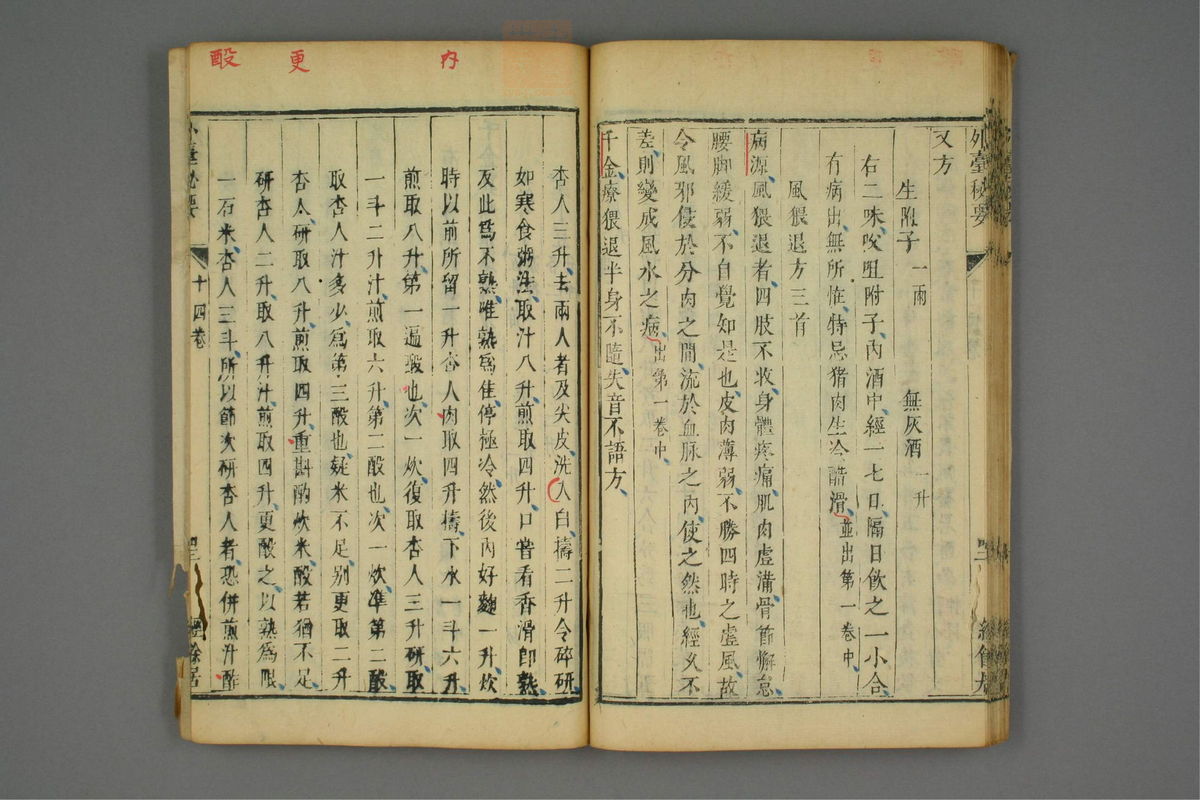 外臺秘要
又方
生附子一兩 無灰酒一升
右二味㕮咀附子內酒中經一七日隔日飲之一小合
有病出無所怪特忌猪肉生冷醋滑並出第一卷中
風猥退方三首
病源風猥退者四肢不收身體疼痛肌肉虛滿骨節懈怠
腰脚緩弱不自覺知是也皮肉薄弱不勝四時之虛風故
令風邪侵於分肉之間流於血脉之內使之然也經久不
差則變成風水之病出第一卷中
千金療猥退半身不隨失音不語方
內
更
酘
杏人三升去兩人者及尖皮洗入臼擣二升令碎研
如寒食粥法取汁八升煎取四升口嘗看香滑即熟
友此為不熟唯熟為佳停極冷然後內好麯一升炊
時以前所留一升杏人肉取四升擣下水一斗六升
煎取八升第一遍酘也次一炊復取杏人三升研取
一斗二升汁煎取六升第二酘也次一炊準第二酘
取杏人汁多少為第三酘也疑米不足别更取二升
杏人研取八升煎取四升重斟酌炊米酘若猶不足
研杏人二升取八升汁煎取四升更酘之以熟為限
一石米杏人三斗所以節次研杏人者恐併煎汁酢
外臺秘要 十四卷 經餘居